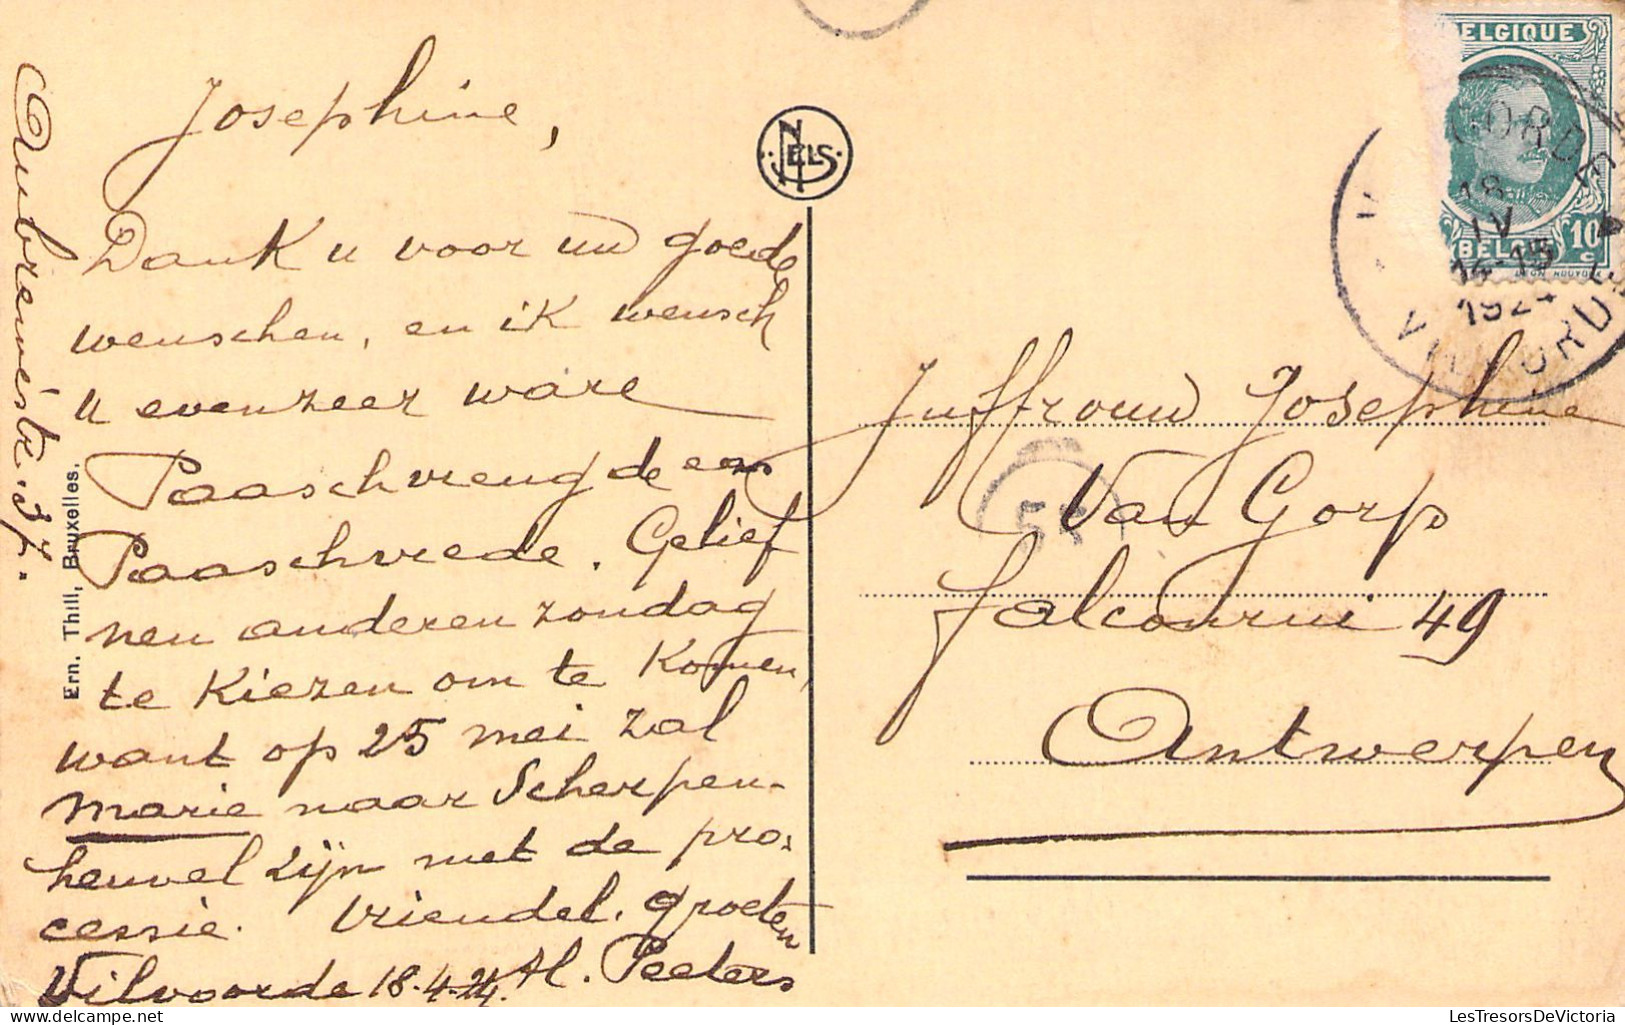 Josephine,
Dank u voor uw goede
wenschen, en ik wensch
u evenzeer ware
Paaschvreugde en
Paaschvrede. Gelief
nen anderen zondag
te kiezen om te komen,
want op 25 mei zal
Marie naar Scherpen-
heuvel zijn met de pro-
cessie. Vriendel. groeten
Vilvoorde 18-4-24. H. Peeters
Aubreméstr. 37.
Ern. Thill, Bruxelles.
NELS
BELGIQUE
10 c
BELGIË
VILVORDE
18
IV
14-15
1924
VILVOORDE
53
Juffrouw Josephine
Van Gorp
Falconrui 49
Antwerpen
LesTresorsDeVictoria